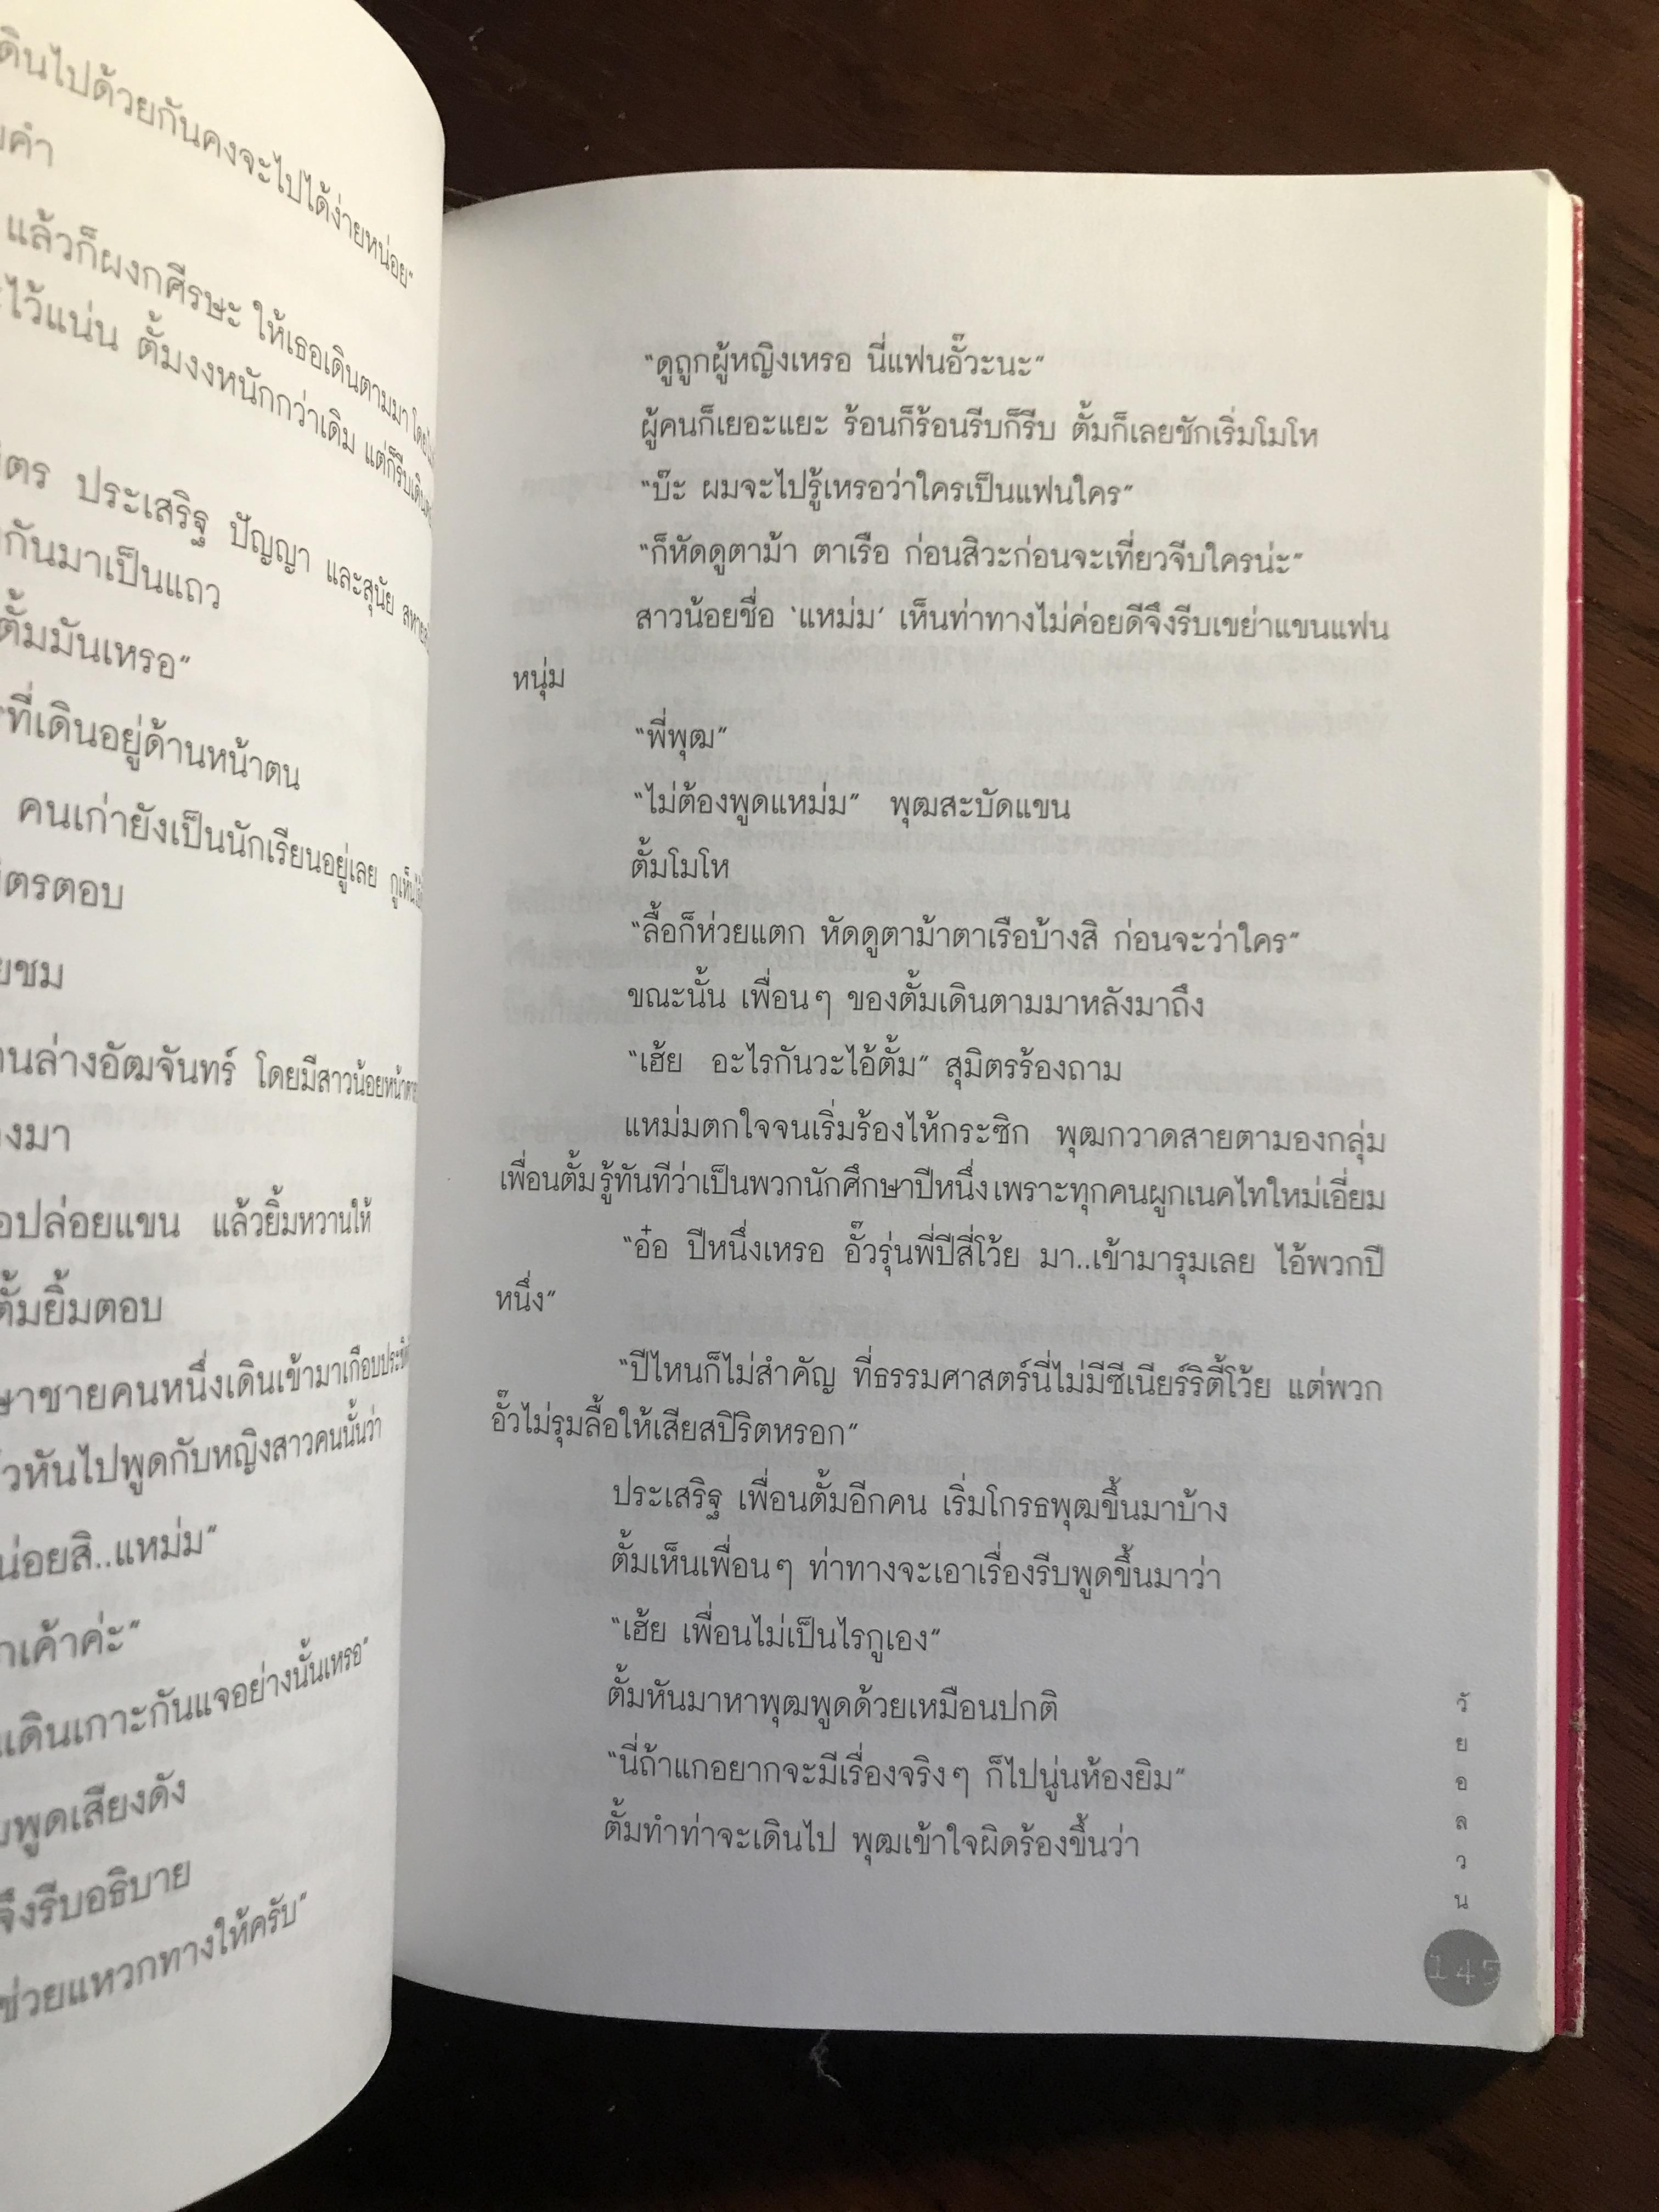 ดินไปด้วยกันคงจะไปได้ง่ายหน่อย"
แล้วก็ผงกศีรษะ ให้เธอเดินตามมา
ไว้แน่น ตั้มงงหนักกว่าเดิม แต่ก็รีบเดิน
ประเสริฐ ปัญญา และสุนัย
กันมาเป็นแถว
ตั้มมันเหรอ"
ที่เดินอยู่ด้านหน้าตน
คนเก่ายังเป็นนักเรียนอยู่เลย กูเห็น
มิตรตอบ
ชม
ล่างอัฒจันทร์ โดยมีสาวน้อยหน้าตา
มา
ปล่อยแขน แล้วยิ้มหวานให้
ตั้มยิ้มตอบ
ชายคนหนึ่งเดินเข้ามาเกือบประชิด
หันไปพูดกับหญิงสาวคนนั้นว่า
น่อยสิ..แหม่ม"
เค้าค่ะ"
เดินเกาะกันแจอย่างนั้นเหรอ"
พูดเสียงดัง
จึงรีบอธิบาย
ช่วยแหวกทางให้ครับ"
"ดูถูกผู้หญิงเหรอ นี่แฟนอั๊วะนะ"
ผู้คนก็เยอะแยะ ร้อนก็ร้อนรีบก็รีบ ตั้มก็เลยชักเริ่มโมโห
"บ๊ะ ผมจะไปรู้เหรอว่าใครเป็นแฟนใคร"
"ก็หัดดูตาม้า ตาเรือ ก่อนสิวะก่อนจะเที่ยวจีบใครน่ะ"
สาวน้อยชื่อ 'แหม่ม' เห็นท่าทางไม่ค่อยดีจึงรีบเขย่าแขนแฟน
หนุ่ม
"พี่พุฒ"
"ไม่ต้องพูดแหม่ม" พุฒสะบัดแขน
ตั้มโมโห
"ลื้อก็ห่วยแตก หัดดูตาม้าตาเรือบ้างสิ ก่อนจะว่าใคร"
ขณะนั้น เพื่อนๆ ของตั้มเดินตามมาหลังมาถึง
"เฮ้ย อะไรกันวะไอ้ตั้ม" สุมิตรร้องถาม
แหม่มตกใจจนเริ่มร้องไห้กระซิก พุฒกวาดสายตามองกลุ่ม
เพื่อนตั้มรู้ทันทีว่าเป็นพวกนักศึกษาปีหนึ่งเพราะทุกคนผูกเนคไทใหม่เอี่ยม
"อ๋อ ปีหนึ่งเหรอ อั๊วรุ่นพี่ปีสี่โว้ย มา..เข้ามารุมเลย ไอ้พวกปี
หนึ่ง"
"ปีไหนก็ไม่สำคัญ ที่ธรรมศาสตร์นี่ไม่มีซีเนียร์ริตี้โว้ย แต่พวก
อั๊วไม่รุมลื้อให้เสียสปิริตหรอก"
ประเสริฐ เพื่อนตั้มอีกคน เริ่มโกรธพุฒขึ้นมาบ้าง
ตั้มเห็นเพื่อนๆ ท่าทางจะเอาเรื่องรีบพูดขึ้นมาว่า
"เฮ้ย เพื่อนไม่เป็นไรกูเอง"
ตั้มหันมาหาพุฒพูดด้วยเหมือนปกติ
"นี่ถ้าแกอยากจะมีเรื่องจริงๆ ก็ไปนู่นห้องยิม"
ตั้มทำท่าจะเดินไป พุฒเข้าใจผิดร้องขึ้นว่า
วัยอลวน
145